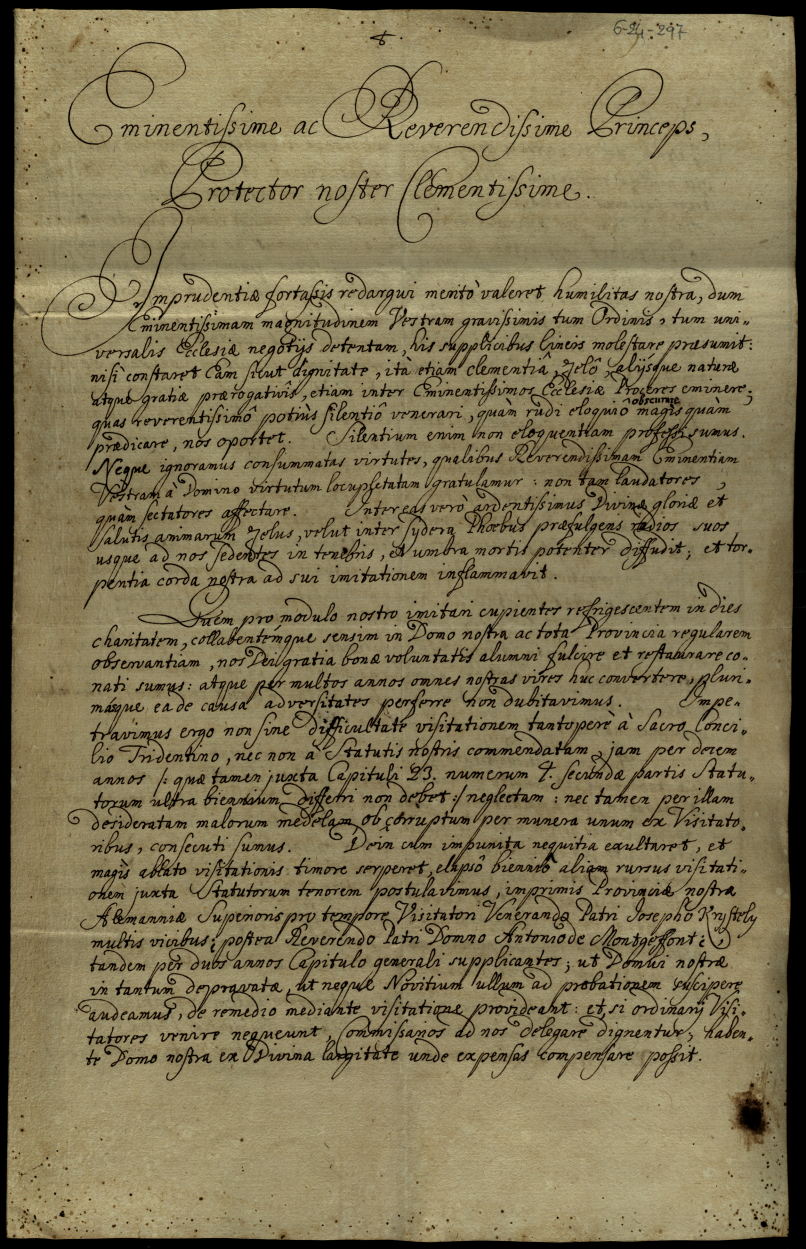 6-24-297
Eminentissime ac Reverendissime Princeps,
Protector noster Clementissime.
Imprudentiæ fortassis redargui meritò valeret humilitas nostra, dum
Eminentissimam magnitudinem Vestram gravissimis tum Ordinis, tum uni-
versalis Ecclesiæ negotijs detentam, his supplicibus lineis molestare præsumit:
nisi constaret Eam sicut dignitate, ità etiam clementiâ, zelô alijsque naturæ
atque gratiæ prærogativis, etiam inter Eminentissimos Ecclesiæ Proceres eminere;
quas reverentissimô potiùs silentiô venerari, quàm rudi eloquiô magis obscurare quàm
prædicare, nos oportet. Silentium enim non eloquentiam professi sumus.
Neque ignoramus consummatas virtutes, qualibus Reverendissimam Eminentiam
Vestram à Domino virtutum locupletatam gratulamur: non tam laudatores,
quàm sectatores affectare. Interea verò ardentissimus Divinæ gloriæ et
salutis animarum zelus, velut inter sydera Phoebus præfulgens radios suos
usque ad nos sedentes in tenebris, et umbra mortis potenter diffudit; et tor-
pentia corda nostra ad sui imitationem inflammavit.
Quem pro modulo nostro imitari cupientes refrigescentem in dies
charitatem, collabentemque sensim in Domo nostra ac tota Provincia regularem
observantiam, nos Dei gratia bonæ voluntatis alumni fulcire et restaurare co-
nati sumus: atque per multos annos omnes nostras vires huc convertere, pluri-
masque ea de causa adversitates perferre non dubitavimus. Impe-
travimus ergo non sine difficultate visitationem tantopere à Sacro Conci-
lio Tridentino, nec non à Statutis nostris commendatam, jam per decem
annos /: quæ tamen juxta Capituli 23. numerum 4. secundæ partis Statu-
torum ultra biennium differri non debet :/ neglectam: nec tamen per illam
desideratam malorum medelam, ob corruptum per munera unum ex Visitato-
ribus, consecuti sumus. Dein cum impunita nequitia exultaret, et
magis ablato visitationis timore serperet, elapsô bienniô aliam rursus visitati-
onem juxta Statutorum tenorem postulavimus, imprimis Provinciæ nostræ
Alemanniæ Superioris pro tempore Visitatori Venerando Patri Josepho Krystely
multis vicibus; postea Reverendo Patri Domno Antonio de Montgeffont;
tandem per duos annos Capitulo generali supplicantes; ut Domui nostræ
in tantum depravatæ, ut neque Novitium ullum ad probationem suscipere
audeamus, de remedio mediante visitatione provideant: et, si ordinarij Visi-
tatores venire nequeunt, Commissarios ad nos delegare dignentur, haben-
te Domo nostra ex Divina largitate unde expensas compensare possit.